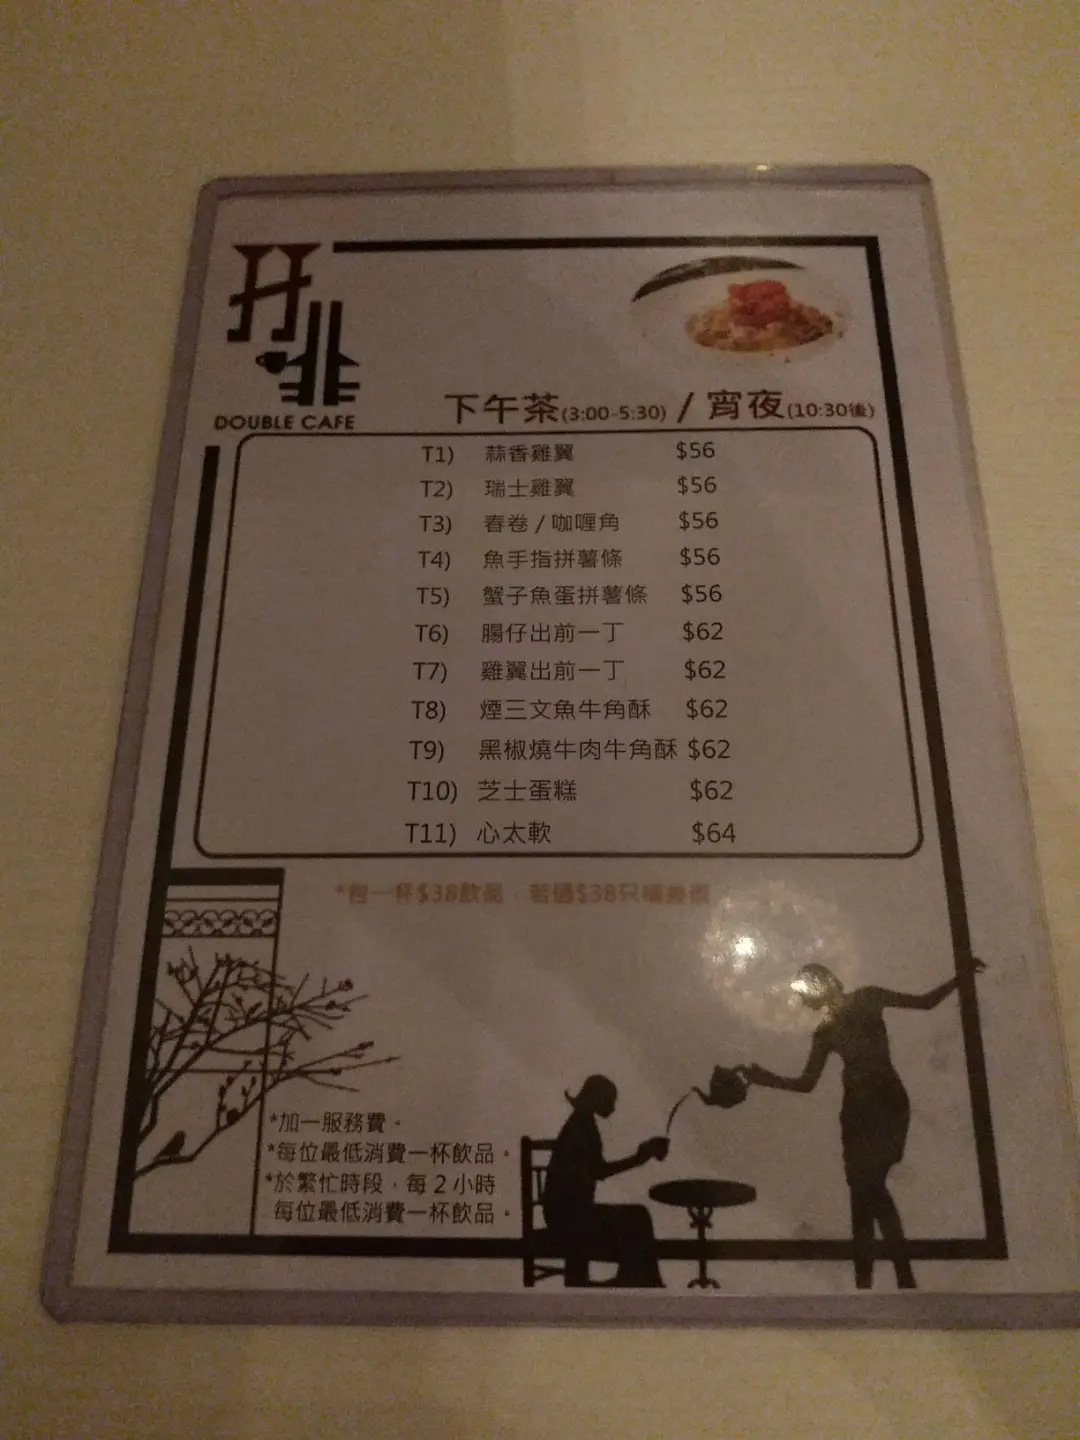 DOUBLE CAFE
下午茶(3:00-5:30) / 宵夜(10:30後)
T1) 蒜香雞翼 $56
T2) 瑞士雞翼 $56
T3) 春卷 / 咖喱角 $56
T4) 魚手指拼薯條 $56
T5) 蟹子魚蛋拼薯條 $56
T6) 腸仔出前一丁 $62
T7) 雞翼出前一丁 $62
T8) 煙三文魚牛角酥 $62
T9) 黑椒燒牛肉牛角酥 $62
T10) 芝士蛋糕 $62
T11) 心太軟 $64
*包一杯$38飲品，若過$38只補差價
*加一服務費。
*每位最低消費一杯飲品。
*於繁忙時段，每2小時
每位最低消費一杯飲品。